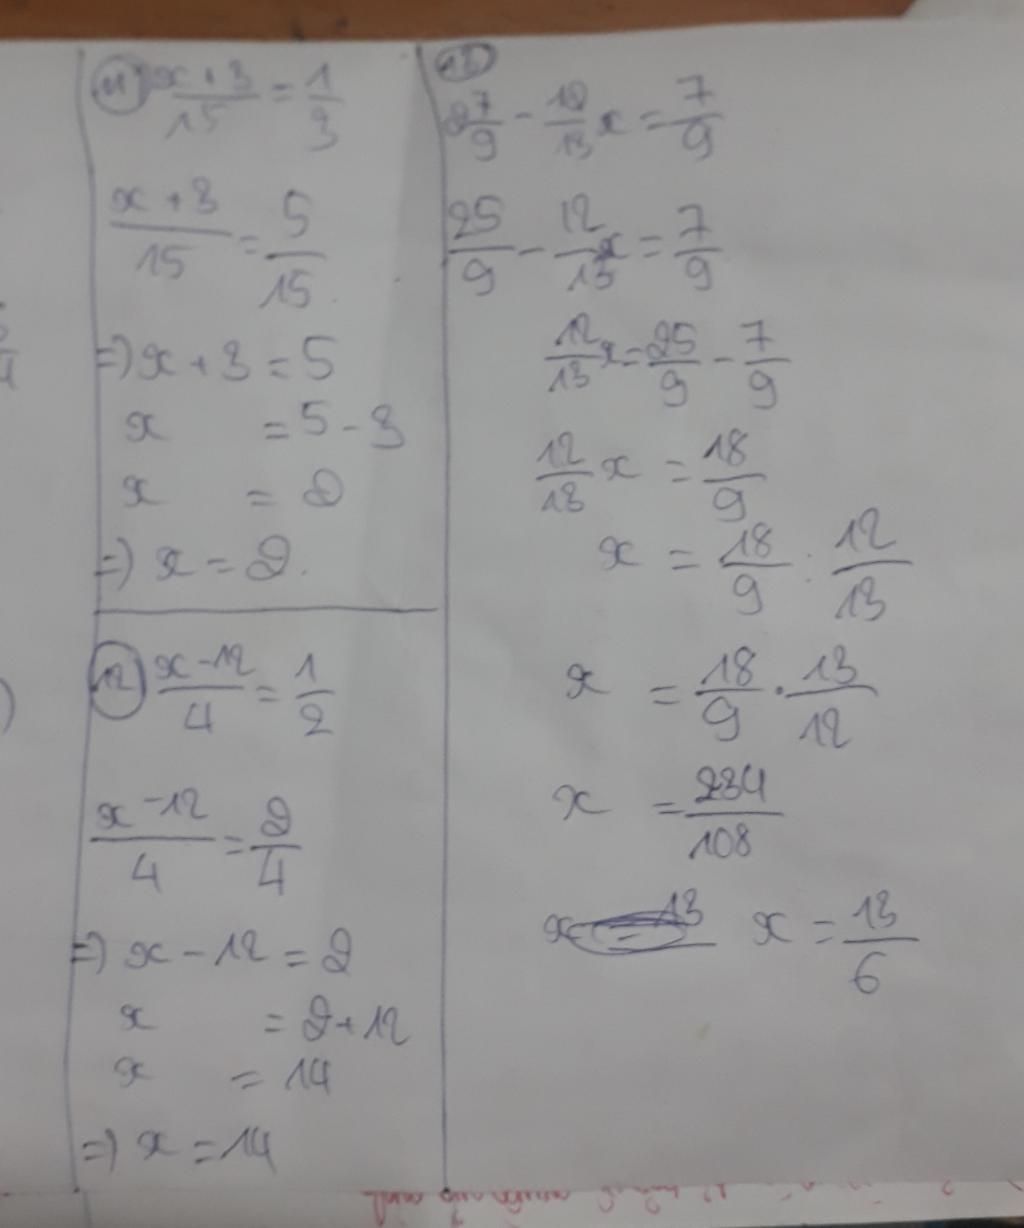 11) x+3/15 = 1/3
x+3/15 = 5/15
=> x+3 = 5
x = 5-3
x = 2
=> x = 2.
12) x-12/4 = 1/2
x-12/4 = 2/4
=> x-12 = 2
x = 2+12
x = 14
=> x = 14
13)
2 7/9 - 12/13 x = 7/9
25/9 - 12/13 x = 7/9
12/13 x = 25/9 - 7/9
12/13 x = 18/9
x = 18/9 : 12/13
x = 18/9 . 13/12
x = 234/108
x = 13/6